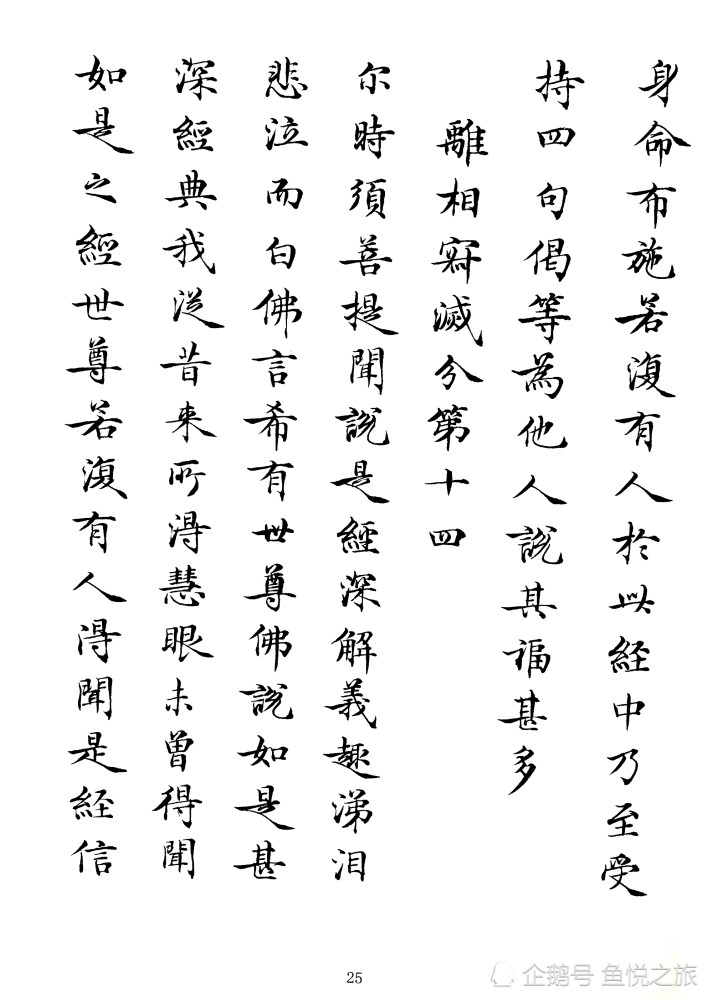 身命布施若復有人於此经中乃至受
持四句偈等為他人說其福甚多
離相寂滅分第十四
尔時須菩提聞說是經深解義趣涕泪
悲泣而白佛言希有世尊佛說如是甚
深經典我從昔来所得慧眼未曾得聞
如是之經世尊若復有人得聞是経信
25
企鹅号 鱼悦之旅